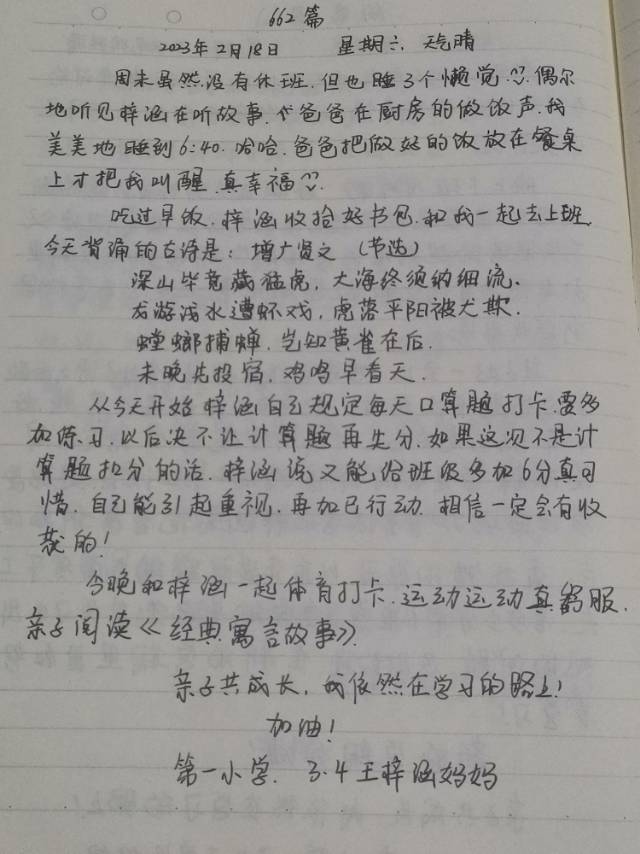 662篇
2023年2月18日 星期六 天气晴
周末虽然没有休班,但也睡了个懒觉。偶尔
地听见梓涵在听故事,爸爸在厨房的做饭声,我
美美地睡到6:40.哈哈,爸爸把做好的饭放在餐桌
上才把我叫醒,真幸福。
吃过早饭,梓涵收拾好书包,和我一起去上班
今天背诵的古诗是:增广贤文 (节选)
深山毕竟藏猛虎,大海终须纳细流.
龙游浅水遭虾戏,虎落平阳被犬欺.
螳螂捕蝉,岂知黄雀在后.
未晚先投宿,鸡鸣早看天.
从今天开始梓涵自己规定每天口算题打卡,要多
加练习,以后决不让计算题再失分,如果这次不是计
算题扣分的话,梓涵说又能给班级多加6分真可
惜,自己能引起重视,再加已行动,相信一定会有收
获的!
今晚和梓涵一起体育打卡,运动运动真舒服.
亲子阅读《经典寓言故事》.
亲子共成长,我依然在学习的路上!
加油!
第一小学. 3.4王梓涵妈妈